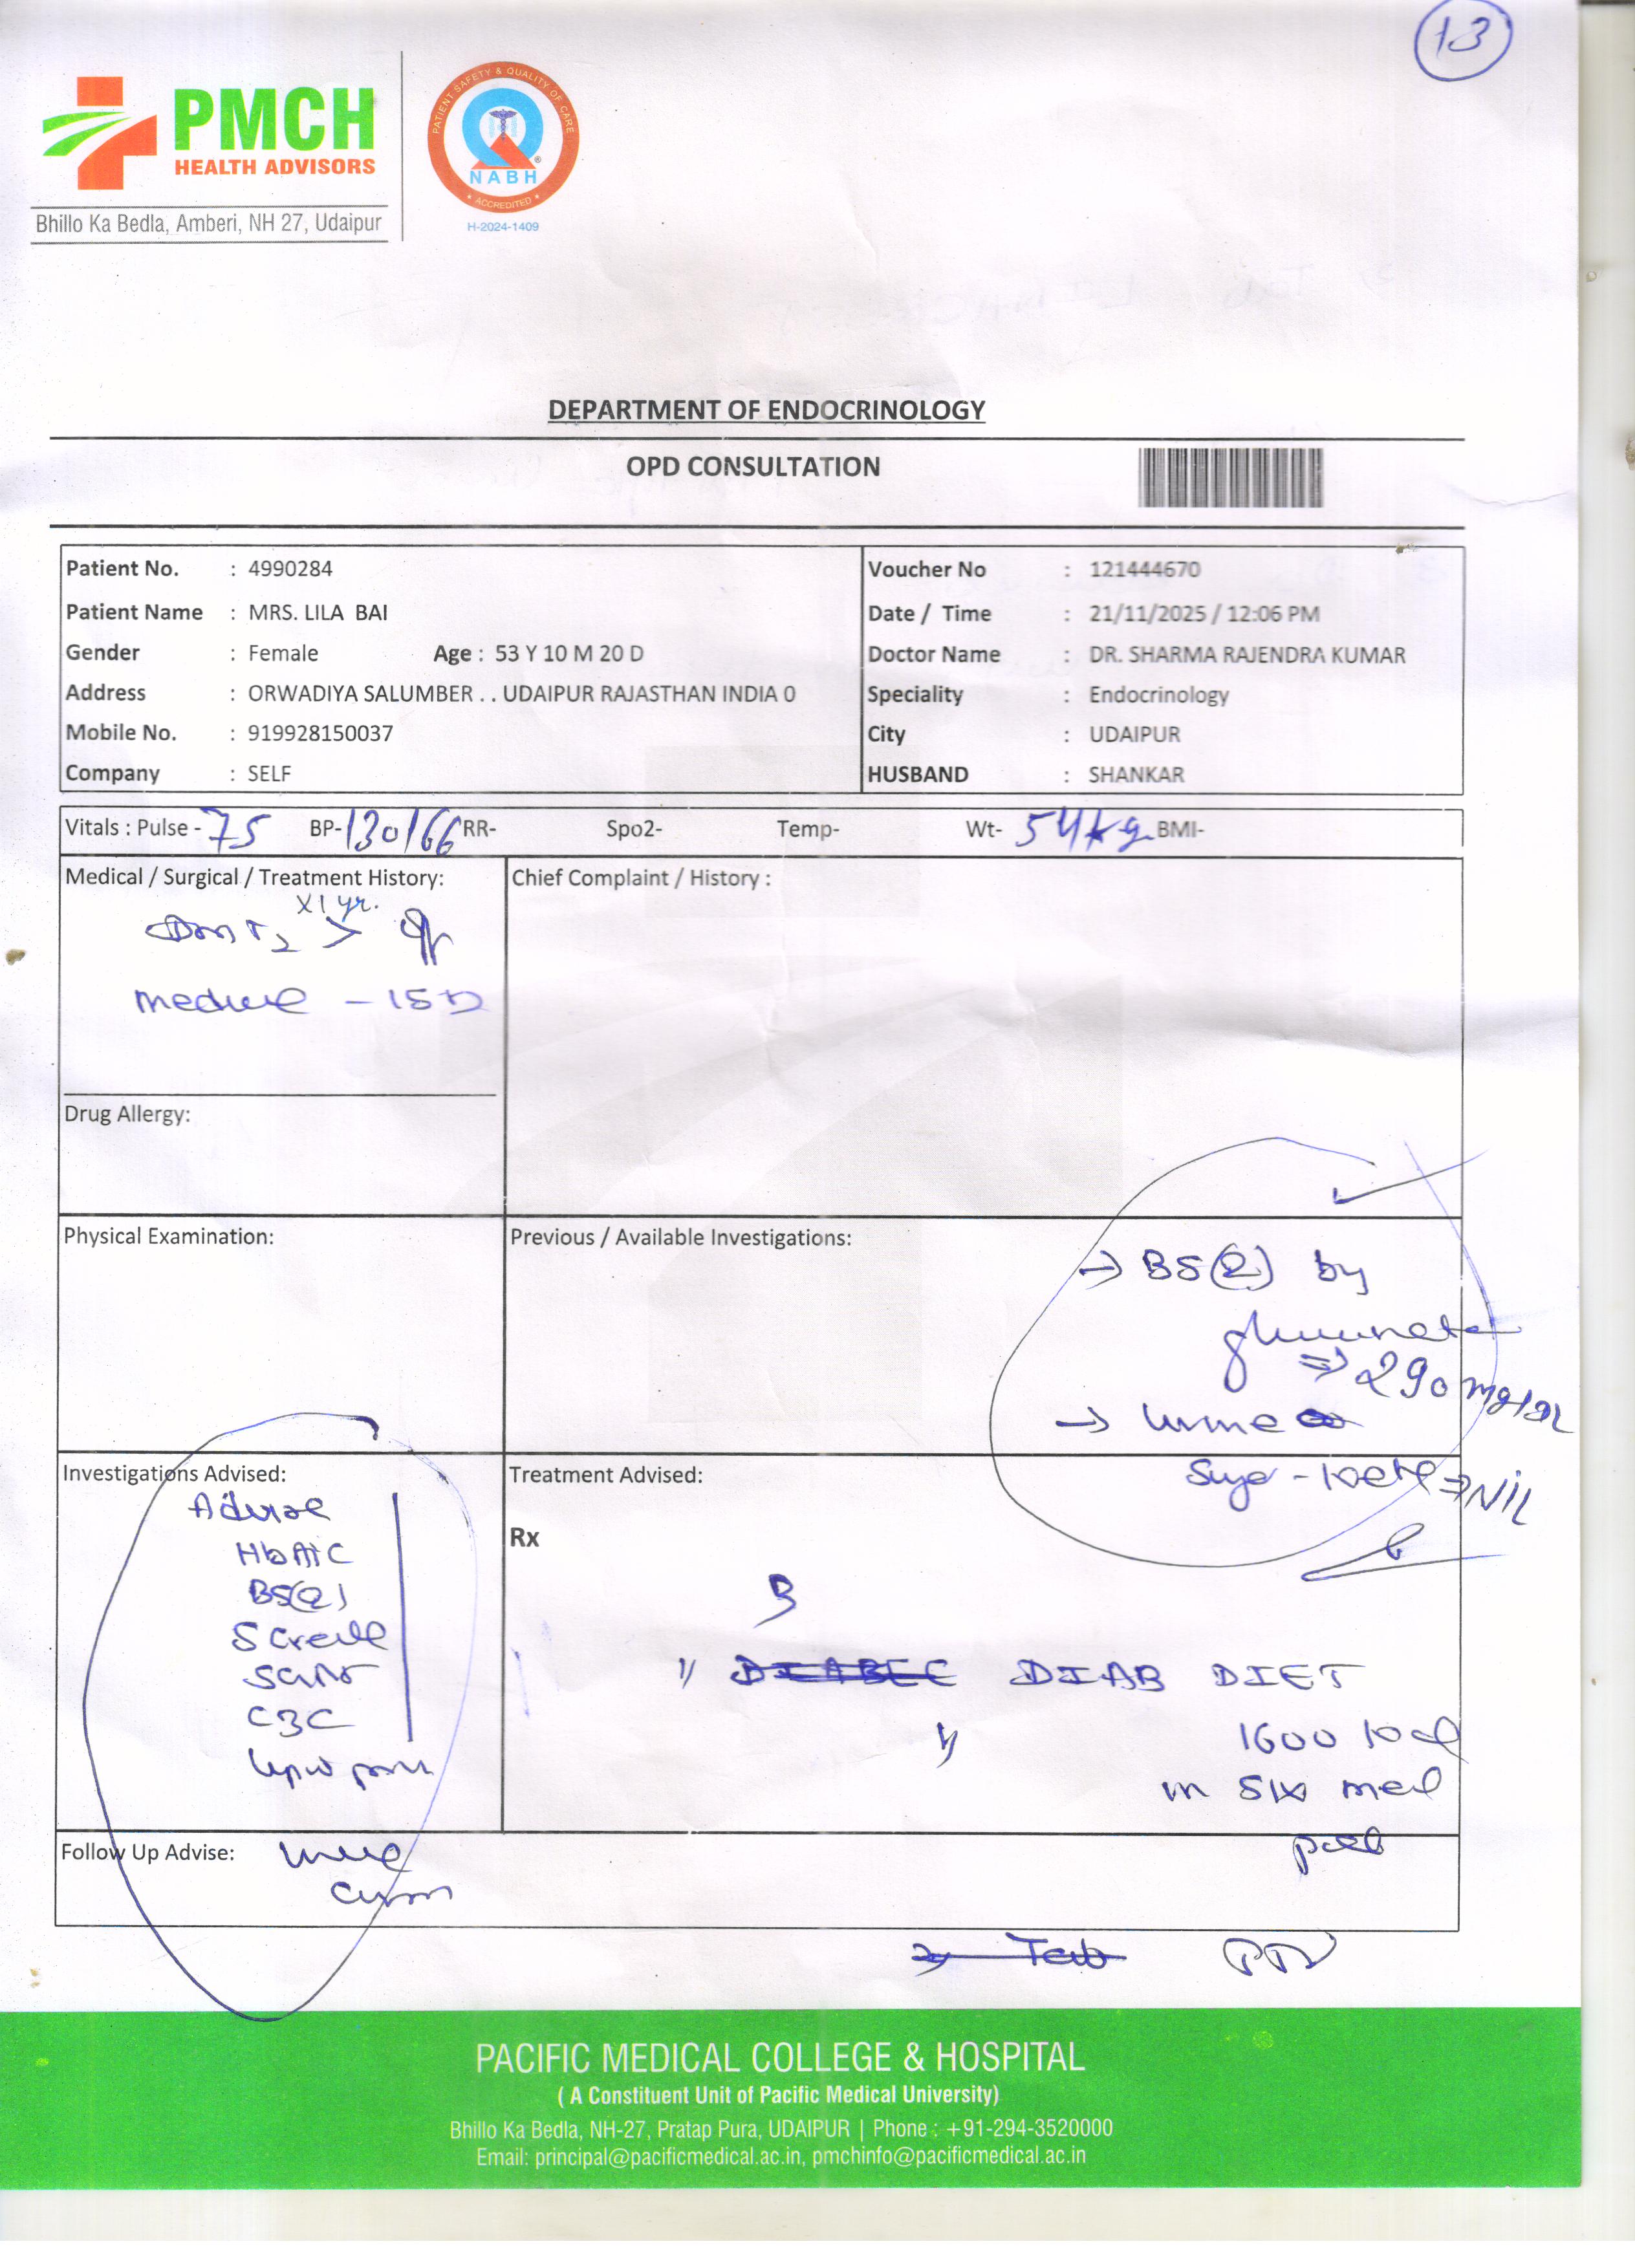 13
PMCH
HEALTH ADVISORS
Bhillo Ka Bedla, Amberi, NH 27, Udaipur
PATIENT SAFETY & QUALITY OF CARE
NABH
ACCREDITED
H-2024-1409
DEPARTMENT OF ENDOCRINOLOGY
OPD CONSULTATION
Patient No. : 4990284 Voucher No : 121444670
Patient Name : MRS. LILA BAI Date / Time : 21/11/2025 / 12:06 PM
Gender : Female Age : 53 Y 10 M 20 D Doctor Name : DR. SHARMA RAJENDRA KUMAR
Address : ORWADIYA SALUMBER . . UDAIPUR RAJASTHAN INDIA 0 Speciality : Endocrinology
Mobile No. : 919928150037 City : UDAIPUR
Company : SELF HUSBAND : SHANKAR
Vitals : Pulse - 75 BP- 130/66 RR- Spo2- Temp- Wt- 54 kg BMI-
Medical / Surgical / Treatment History: Chief Complaint / History :
X1 yr.
DM T2 >
- 15 D
Drug Allergy:
Physical Examination: Previous / Available Investigations:
→ BS(R) by
⇒ 290 mg/dl
→ urine
Investigations Advised: Treatment Advised:
⇒ NIL
Advise
HbA1C
Rx
BS(R)
S creat
CBC
1) DIAB DIET
1600 kcal
in six meal
Follow Up Advise:
Tab
PACIFIC MEDICAL COLLEGE & HOSPITAL
( A Constituent Unit of Pacific Medical University)
Bhillo Ka Bedla, NH-27, Pratap Pura, UDAIPUR | Phone : +91-294-3520000
Email: principal@pacificmedical.ac.in, pmchinfo@pacificmedical.ac.in